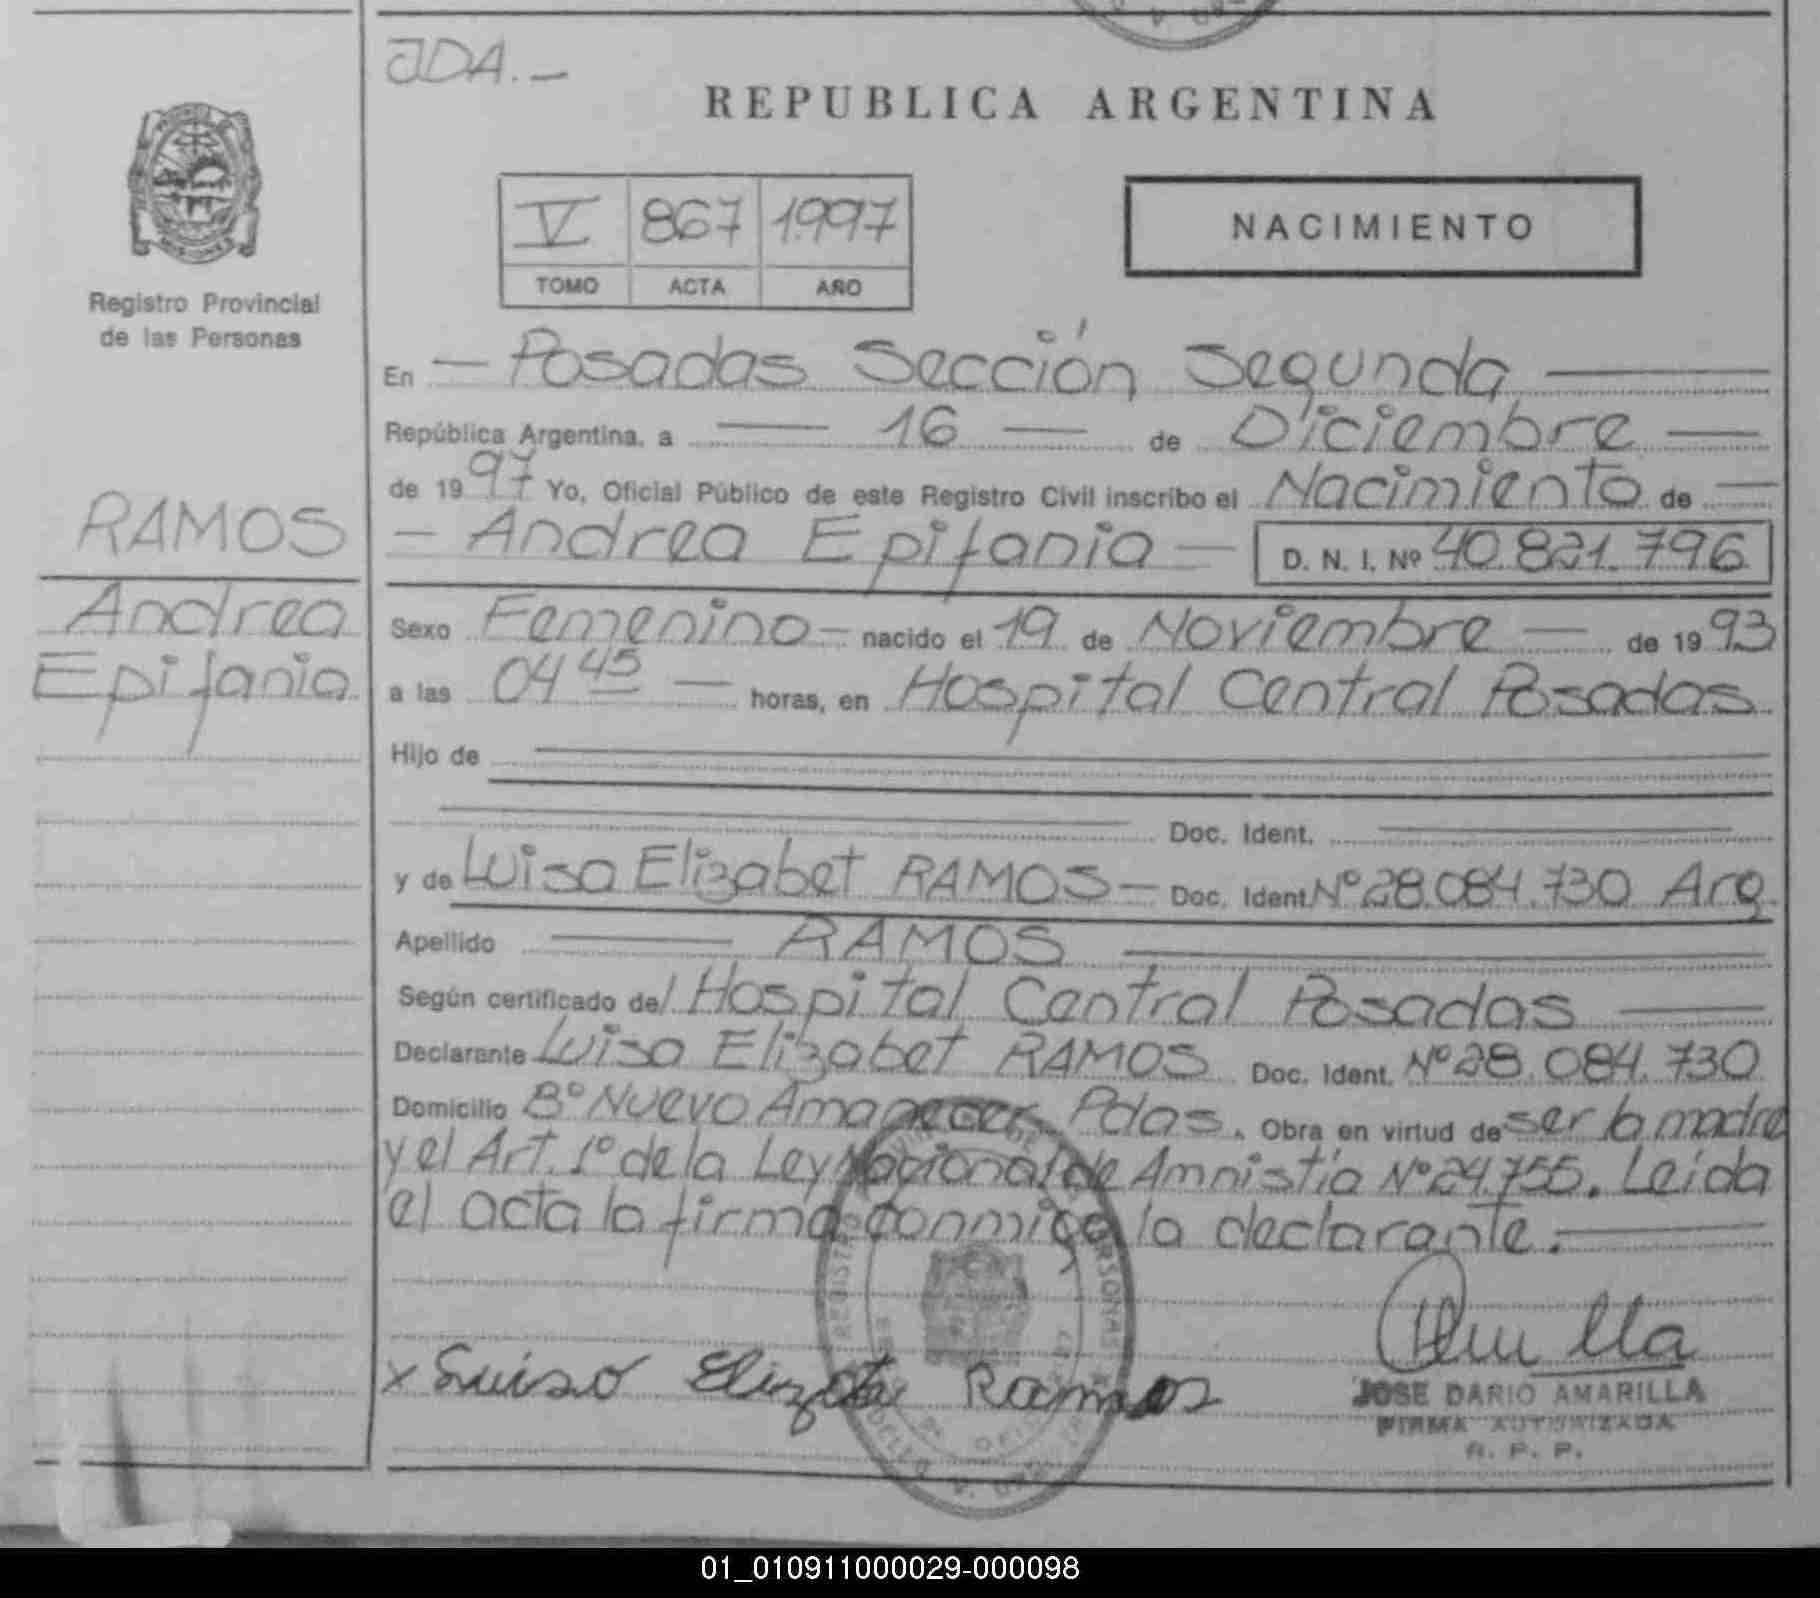 JDA.-
REPUBLICA ARGENTINA
V 867 1.997
TOMO ACTA AÑO
NACIMIENTO
Registro Provincial
de las Personas
RAMOS
Andrea
Epifania
En — Posadas Sección Segunda —
República Argentina, a — 16 — de Diciembre —
de 1997 Yo, Oficial Público de este Registro Civil inscribo el Nacimiento de —
— Andrea Epifania — D. N. I. Nº 40.821.796
Sexo Femenino — nacido el 19 de Noviembre — de 1993
a las 04 45 — horas, en Hospital Central Posadas
Hijo de
Doc. Ident.
y de Luisa Elizabet RAMOS — Doc. Ident. Nº 28.084.730 Arg.
Apellido — RAMOS —
Según certificado del Hospital Central Posadas —
Declarante Luisa Elizabet RAMOS Doc. Ident. Nº 28.084.730
Domicilio Bº Nuevo Amanecer Pdas. Obra en virtud de ser la madre
y el Art. 1º de la Ley Nacional de Amnistía Nº 24.755. Leida
el acta la firma conmigo la declarante.—
x Luisa Elizabet Ramos
JOSE DARIO AMARILLA
FIRMA AUTORIZADA
R. P. P.
01_010911000029-000098